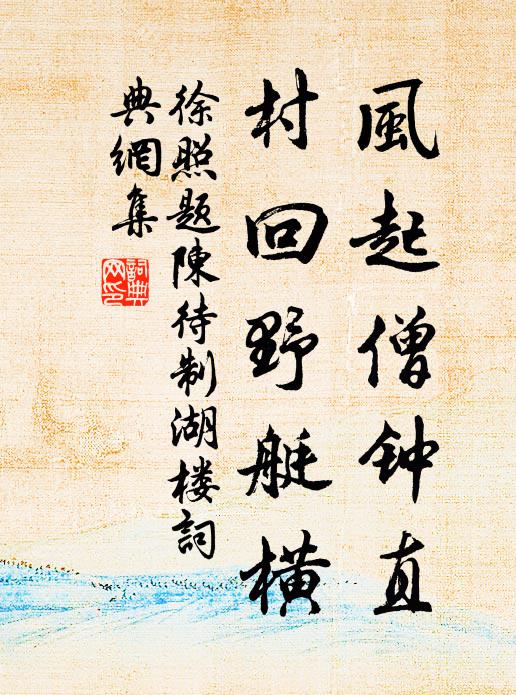 風起僧钟直
村回野艇横
徐照题陳待制湖楼詞
典網集
詞典
网印